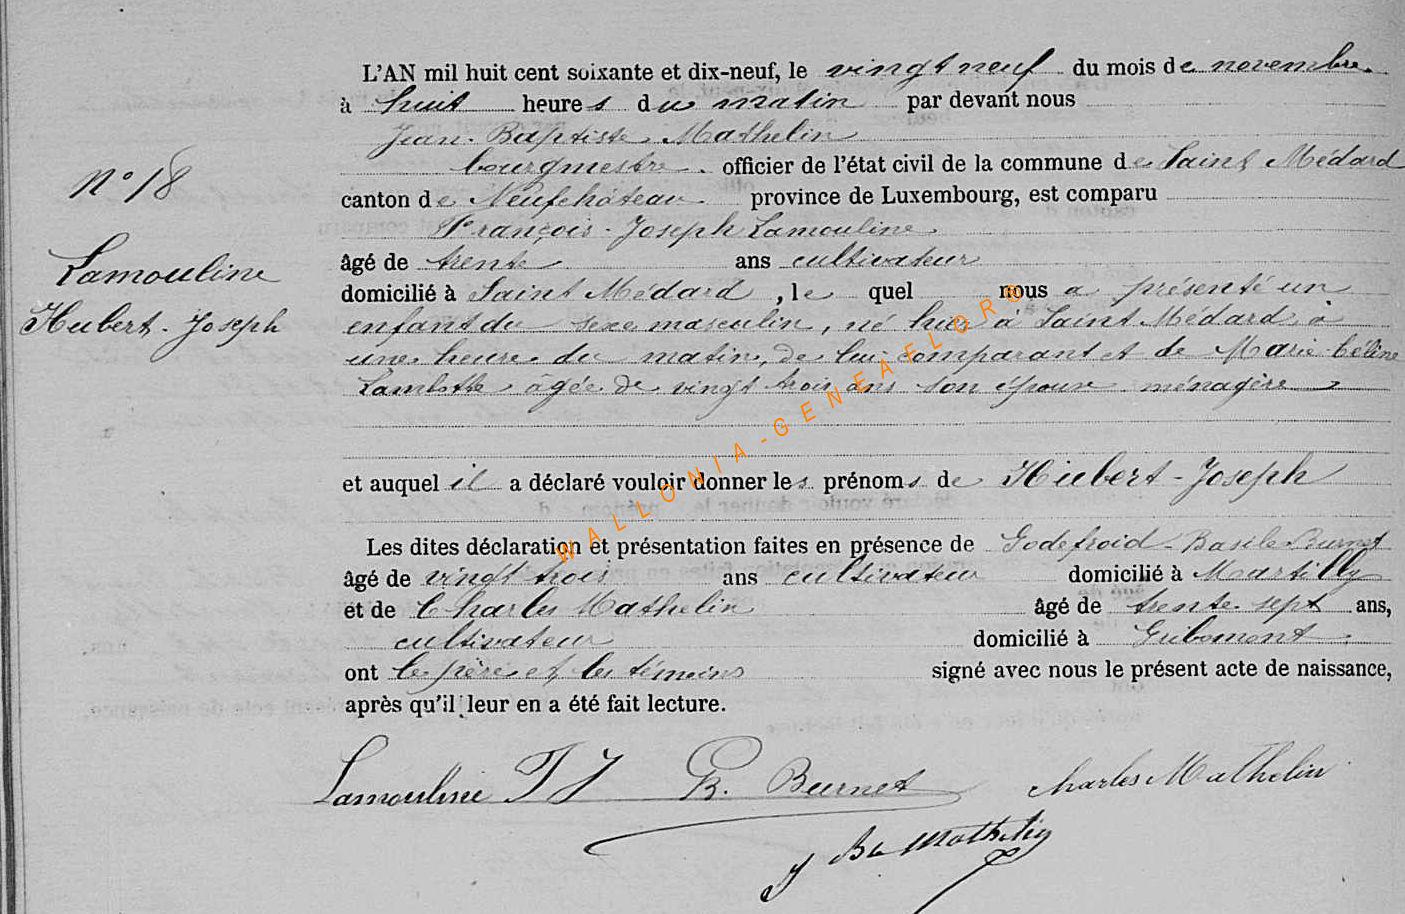 L'AN mil huit cent soixante et dix-neuf, le vingt neuf du mois de novembre
à huit heures du matin par devant nous
Jean-Baptiste Mathelin
bourgmestre officier de l'état civil de la commune de Saint Médard
canton de Neufchâteau province de Luxembourg, est comparu
François-Joseph Lamouline
âgé de trente ans cultivateur
domicilié à Saint Médard, le quel nous a présenté un
enfant du sexe masculin, né hier à Saint Médard à
une heure du matin, de lui comparant et de Marie-Céline
Lambotte âgée de vingt trois ans son épouse ménagère
et auquel il a déclaré vouloir donner les prénoms de Hubert-Joseph
Les dites déclaration et présentation faites en présence de Godefroid-Basile Burnet
âgé de vingt trois ans cultivateur domicilié à Martilly
et de Charles Mathelin âgé de trente-sept ans,
cultivateur domicilié à Gribomont
ont le père et les témoins signé avec nous le présent acte de naissance,
après qu'il leur en a été fait lecture.
N° 18
Lamouline
Hubert-Joseph
Lamouline F J B. Burnet Charles Mathelin
J Bte Mathelin
WALLONIA-GENEAELORS